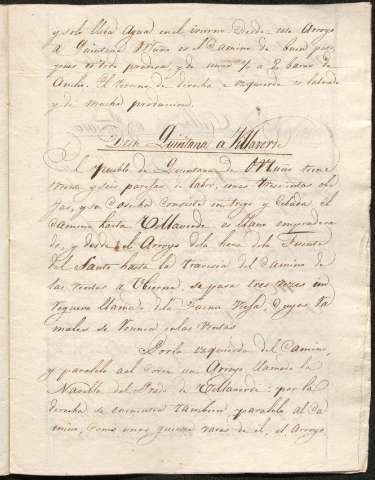 y solo lleba Agua en el invierno. Desde este Arroyo
a Quintana Muño es el Camino de buen piso
pues es todo pradera, y de unas 7 a 8 baras de
Ancho. El terreno de derecha e izquierda es labrado
y de mucha produccion.
Desde Quintana a Villaverde
El pueblo de Quintana de Muño tiene
treinta y seis parejas de labor, unas trescientas obe
jas, y su Cosecha consiste en trigo y Cebada. el
Camino hasta Villaverde es llano empradera
do, y desde el Arroyo dela hera dela Fuente
del Santo hasta la travesia del Camino de
las ventas a se pasa tres vezes un
reguero llamado dela Buena Mesa, cuyos Ra
males se reunen en las Ventas
Por la izquierda del Camino,
y paralelo a el corre un Arroyo llamado la
del Prado de Villaverde: por la
derecha se encuentra tambien paralelo al Ca
mino, como unas quince varas de el, el Arroyo